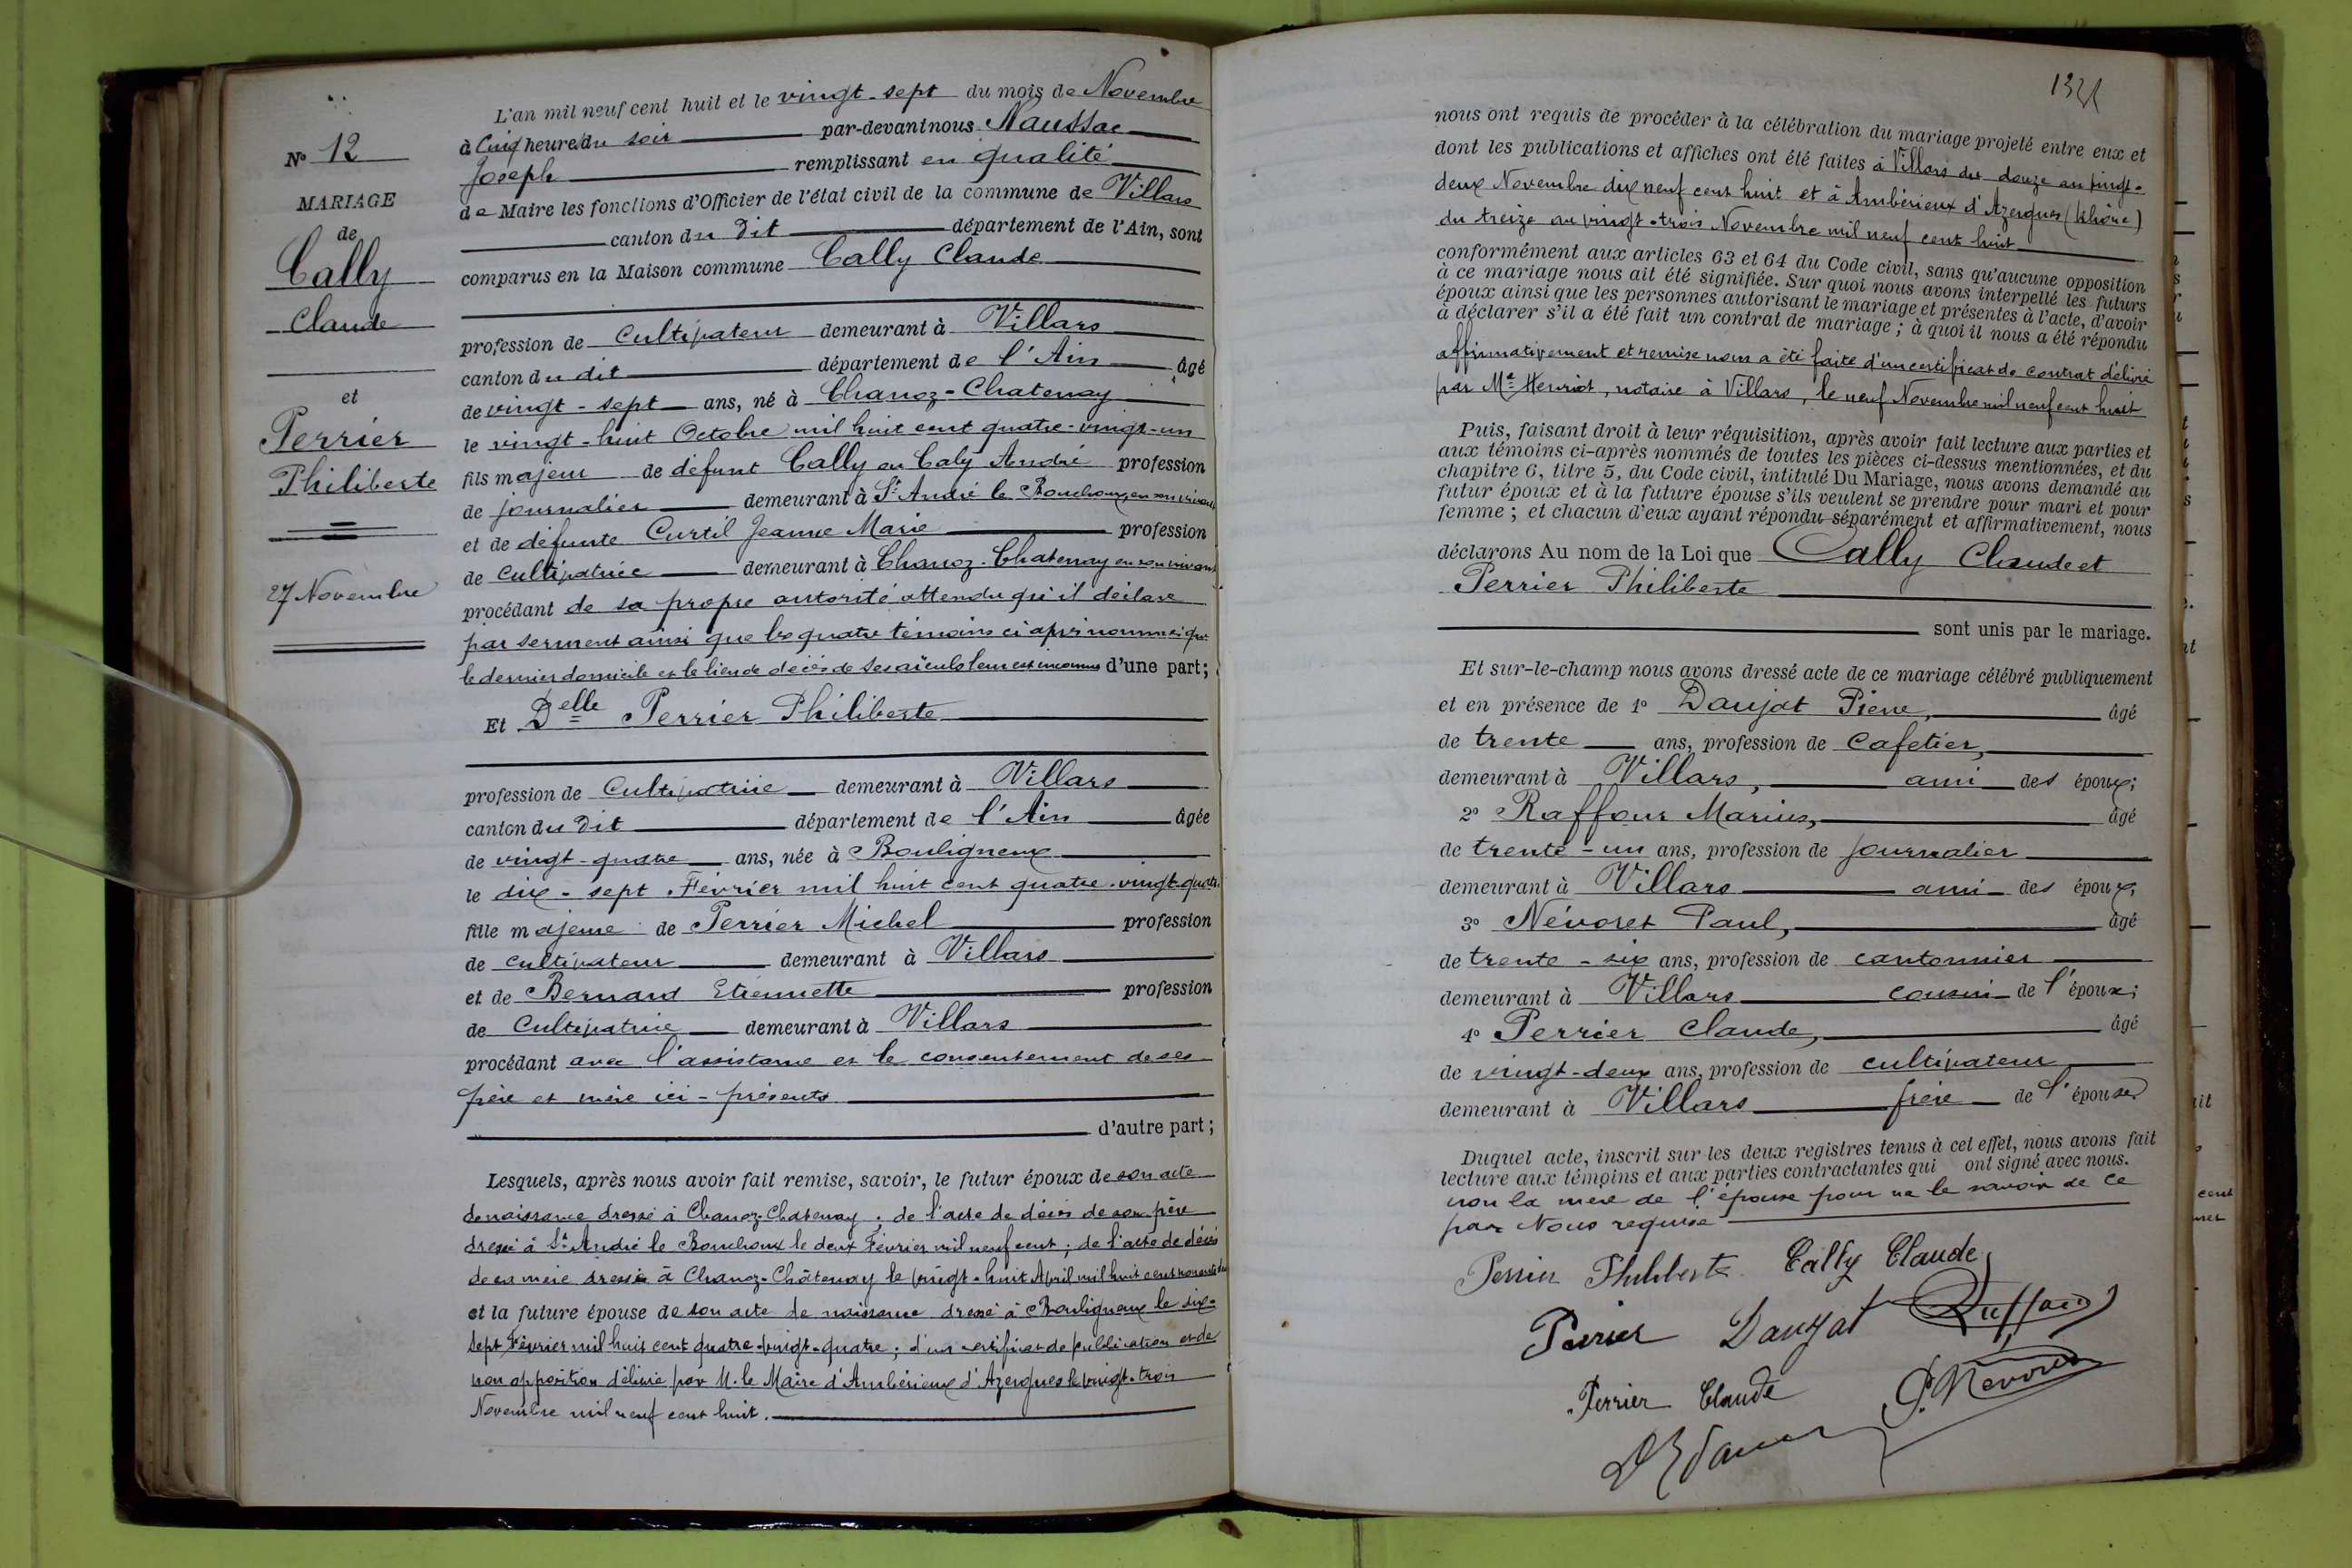 N° 12
MARIAGE
de
Cally
Claude
et
Perrier
Philiberte
27 Novembre
L'an mil neuf cent huit et le vingt-sept du mois de Novembre
à Cinq heures du soir par-devant nous Naussac
Joseph remplissant en qualité
de Maire les fonctions d'Officier de l'état civil de la commune de Villars
canton du dit département de l'Ain, sont
comparus en la Maison commune Cally Claude
profession de Cultivateur demeurant à Villars
canton du dit département de l'Ain âgé
de vingt-sept ans, né à Chanoz-Chatenay
le vingt-huit Octobre mil huit cent quatre-vingt-un
fils majeur de défunt Cally ou Caly André profession
de journalier demeurant à St André le Bouchoux, en son vivant
et de défunte Curtil Jeanne Marie profession
de Cultivatrice demeurant à Chanoz-Chatenay en son vivant
procédant de sa propre autorité attendu qu'il déclare
par serment ainsi que les quatre témoins ci après nommés que
le dernier domicile et le lieu de décès de ses aïeuls leur est inconnus d'une part;
Et Delle Perrier Philiberte
profession de Cultivatrice demeurant à Villars
canton du dit département de l'Ain âgée
de vingt-quatre ans, née à Bouligneux
le dix-sept Février mil huit cent quatre-vingt-quatre
fille majeure de Perrier Michel profession
de cultivateur demeurant à Villars
et de Bernard Etiennette profession
de Cultivatrice demeurant à Villars
procédant avec l'assistance et le consentement de ses
père et mère ici-présents
d'autre part;
Lesquels, après nous avoir fait remise, savoir, le futur époux de son acte
de naissance dressé à Chanoz-Chatenay; de l'acte de décès de son père
dressé à St André le Bouchoux le deux Février mil neuf cent; de l'acte de décès
de sa mère dressé à Chanoz-Châtenay le vingt-huit Avril mil huit cent
et la future épouse de son acte de naissance dressé à Bouligneux le dix-
sept Février mil huit cent quatre-vingt-quatre; d'un certificat de publication et de
non opposition délivré par M. le Maire d'Ambérieux d'Azergues le vingt-trois
Novembre mil neuf cent huit.
nous ont requis de procéder à la célébration du mariage projeté entre eux et
dont les publications et affiches ont été faites à Villars du douze au vingt-
deux Novembre dix neuf cent huit et à Ambérieux d'Azergues (Rhône)
du treize au vingt-trois Novembre mil neuf cent huit
conformément aux articles 63 et 64 du Code civil, sans qu'aucune opposition
à ce mariage nous ait été signifiée. Sur quoi nous avons interpellé les futurs
époux ainsi que les personnes autorisant le mariage et présentes à l'acte, d'avoir
à déclarer s'il a été fait un contrat de mariage; à quoi il nous a été répondu
affirmativement et remise nous a été faite d'un certificat de contrat délivré
par Me Henriot, notaire à Villars, le neuf Novembre mil neuf cent huit
Puis, faisant droit à leur réquisition, après avoir fait lecture aux parties et
aux témoins ci-après nommés de toutes les pièces ci-dessus mentionnées, et du
chapitre 6, titre 5, du Code civil, intitulé Du Mariage, nous avons demandé au
futur époux et à la future épouse s'ils veulent se prendre pour mari et pour
femme; et chacun d'eux ayant répondu séparément et affirmativement, nous
déclarons Au nom de la Loi que Cally Claude et
Perrier Philiberte
sont unis par le mariage.
Et sur-le-champ nous avons dressé acte de ce mariage célébré publiquement
et en présence de 1° Daujat Pierre, âgé
de trente ans, profession de Cafetier,
demeurant à Villars, ami des époux;
2° Raffour Marius, âgé
de trente-un ans, profession de journalier
demeurant à Villars ami des époux;
3° Névoret Paul, âgé
de trente-six ans, profession de cantonnier
demeurant à Villars cousin de l'époux;
4° Perrier Claude, âgé
de vingt-deux ans, profession de cultivateur
demeurant à Villars frère de l'épouse
Duquel acte, inscrit sur les deux registres tenus à cet effet, nous avons fait
lecture aux témoins et aux parties contractantes qui ont signé avec nous.
non la mère de l'épouse pour ne le savoir de ce
par Nous requise
Perrier Philiberte Cally Claude
Perrier Daujat Raffour
Perrier Claude P. Nevoret